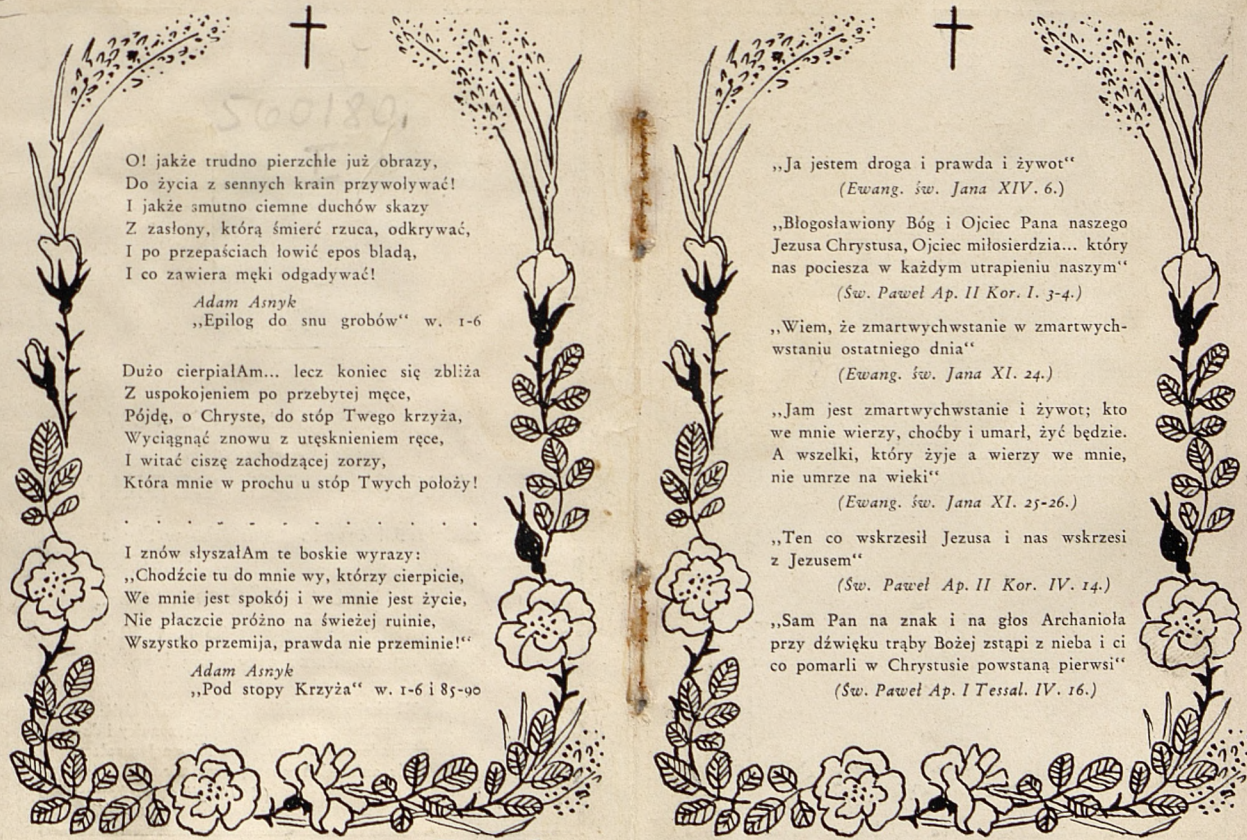 560180.
O! jakże trudno pierzchłe już obrazy,
Do życia z sennych krain przywoływać!
I jakże smutno ciemne duchów skazy
Z zasłony, którą śmierć rzuca, odkrywać,
I po przepaściach łowić epos bladą,
I co zawiera męki odgadywać!
Adam Asnyk
„Epilog do snu grobów“ w. 1-6
Dużo cierpiałAm... lecz koniec się zbliża
Z uspokojeniem po przebytej męce,
Pójdę, o Chryste, do stóp Twego krzyża,
Wyciągnąć znowu z utęsknieniem ręce,
I witać ciszę zachodzącej zorzy,
Która mnie w prochu u stóp Twych położy!
. . . . . . . . . . . . . .
I znów słyszałAm te boskie wyrazy:
„Chodźcie tu do mnie wy, którzy cierpicie,
We mnie jest spokój i we mnie jest życie,
Nie płaczcie próżno na świeżej ruinie,
Wszystko przemija, prawda nie przeminie!“
Adam Asnyk
„Pod stopy Krzyża“ w. 1-6 i 85-90
„Ja jestem droga i prawda i żywot“
(Ewang. św. Jana XIV. 6.)
„Błogosławiony Bóg i Ojciec Pana naszego
Jezusa Chrystusa, Ojciec miłosierdzia... który
nas pociesza w każdym utrapieniu naszym“
(Św. Paweł Ap. II Kor. I. 3-4.)
„Wiem, że zmartwychwstanie w zmartwych-
wstaniu ostatniego dnia“
(Ewang. św. Jana XI. 24.)
„Jam jest zmartwychwstanie i żywot; kto
we mnie wierzy, choćby i umarł, żyć będzie.
A wszelki, który żyje a wierzy we mnie,
nie umrze na wieki“
(Ewang. św. Jana XI. 25-26.)
„Ten co wskrzesił Jezusa i nas wskrzesi
z Jezusem“
(Św. Paweł Ap. II Kor. IV. 14.)
„Sam Pan na znak i na głos Archanioła
przy dźwięku trąby Bożej zstąpi z nieba i ci
co pomarli w Chrystusie powstaną pierwsi“
(Św. Paweł Ap. I Tessal. IV. 16.)